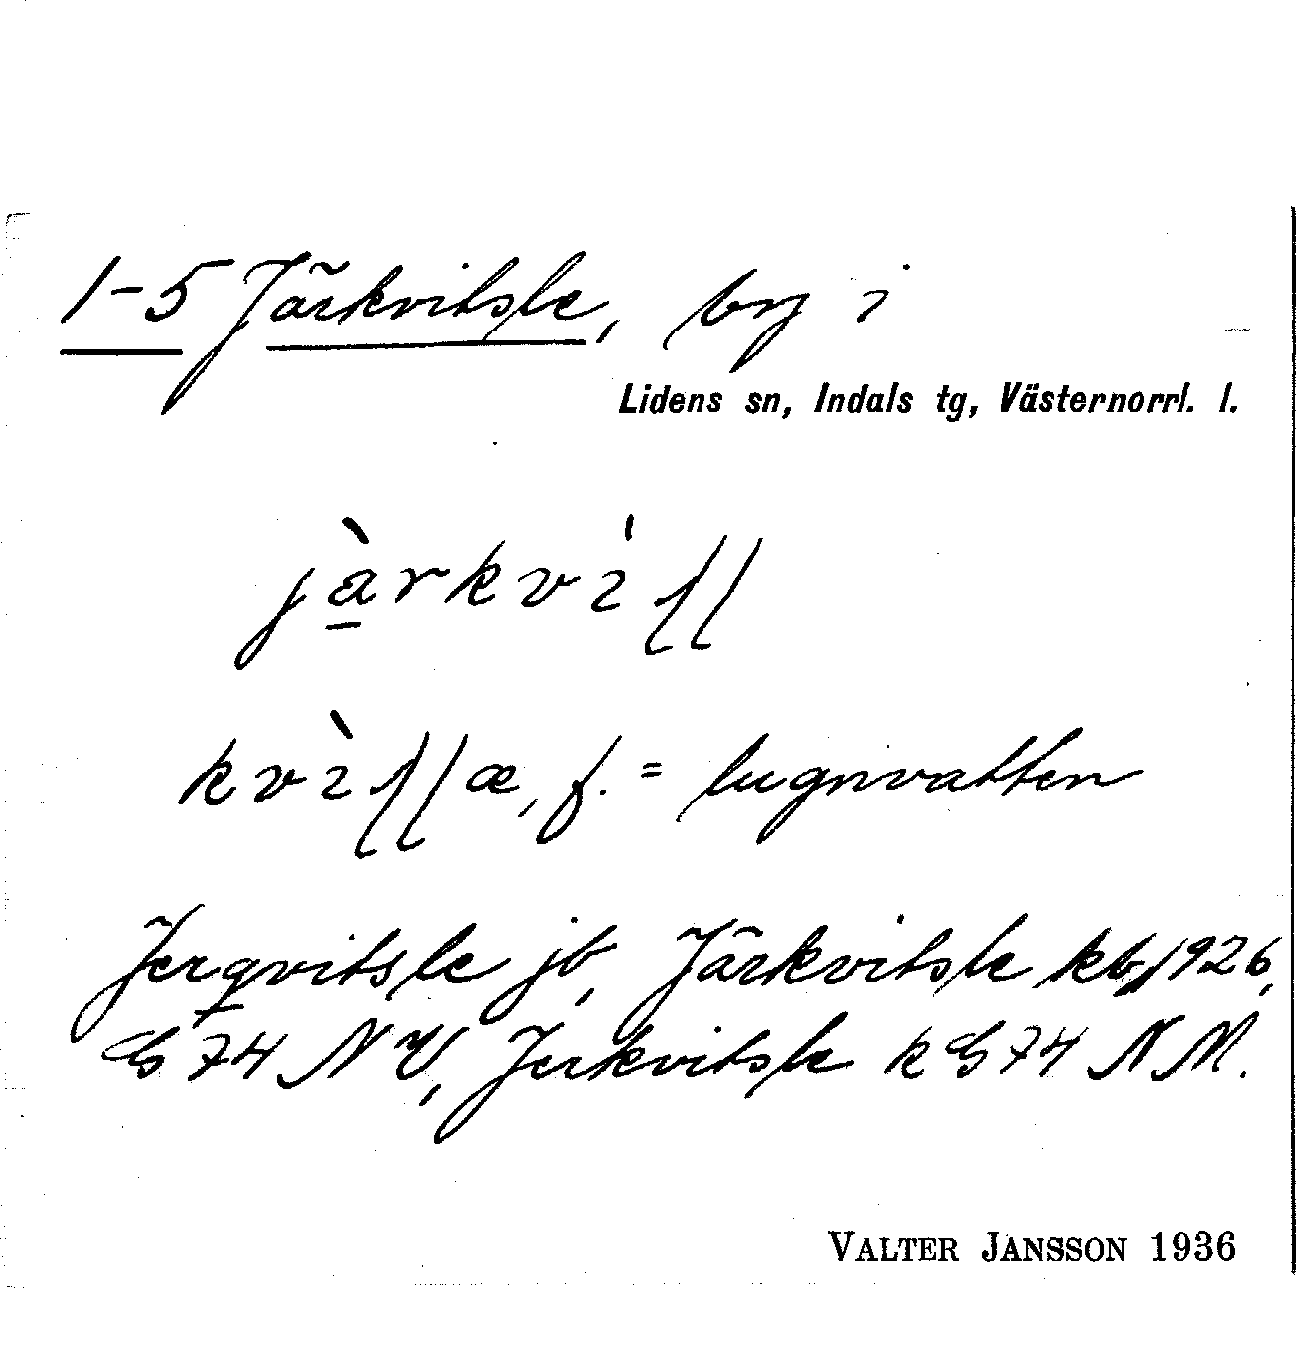 1-5 Järkvitsle, by i
Lidens sn, Indals tg, Västernorrl. l.
jàrkvıʃʃ
kvıʃʃæ, f. = lugnvatten
Jerqvitsle jb, Järkvitsle kb 1926,
GS 74 NV, Jerkvitsle k GS 74 NM.
VALTER JANSSON 1936